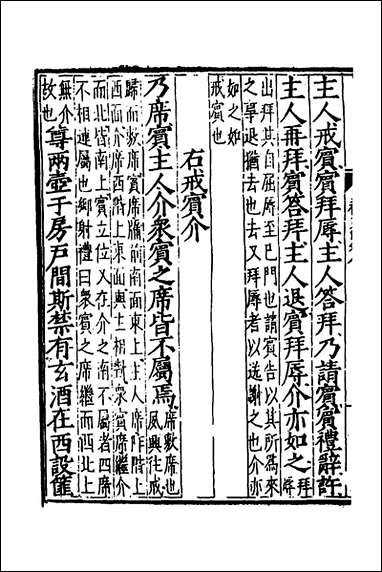 主人戒賓賓拜辱主人答拜乃請賓賓禮辭許
主人再拜賓答拜主人退賓拜辱介亦如之
拜
辱
出拜其自屈辱至已門也請賓告以其所爲來
之事退猶去也去又拜辱者以送謝之也介亦
如之如
戒賓也
右戒賓介
乃席賓主人介衆賓之席皆不屬焉
席敷席也
夙興往戒
歸而敷席賓席牖前南面東上主人席阼階上
西面介席西階上東面與主相對衆賓席繼介
而北皆南上賓立位又在介之南不屬者四席
不相連屬也鄉射禮曰衆賓之席繼而西北上
無介
故也
尊兩壺于房戶間斯禁有玄酒在西設篚